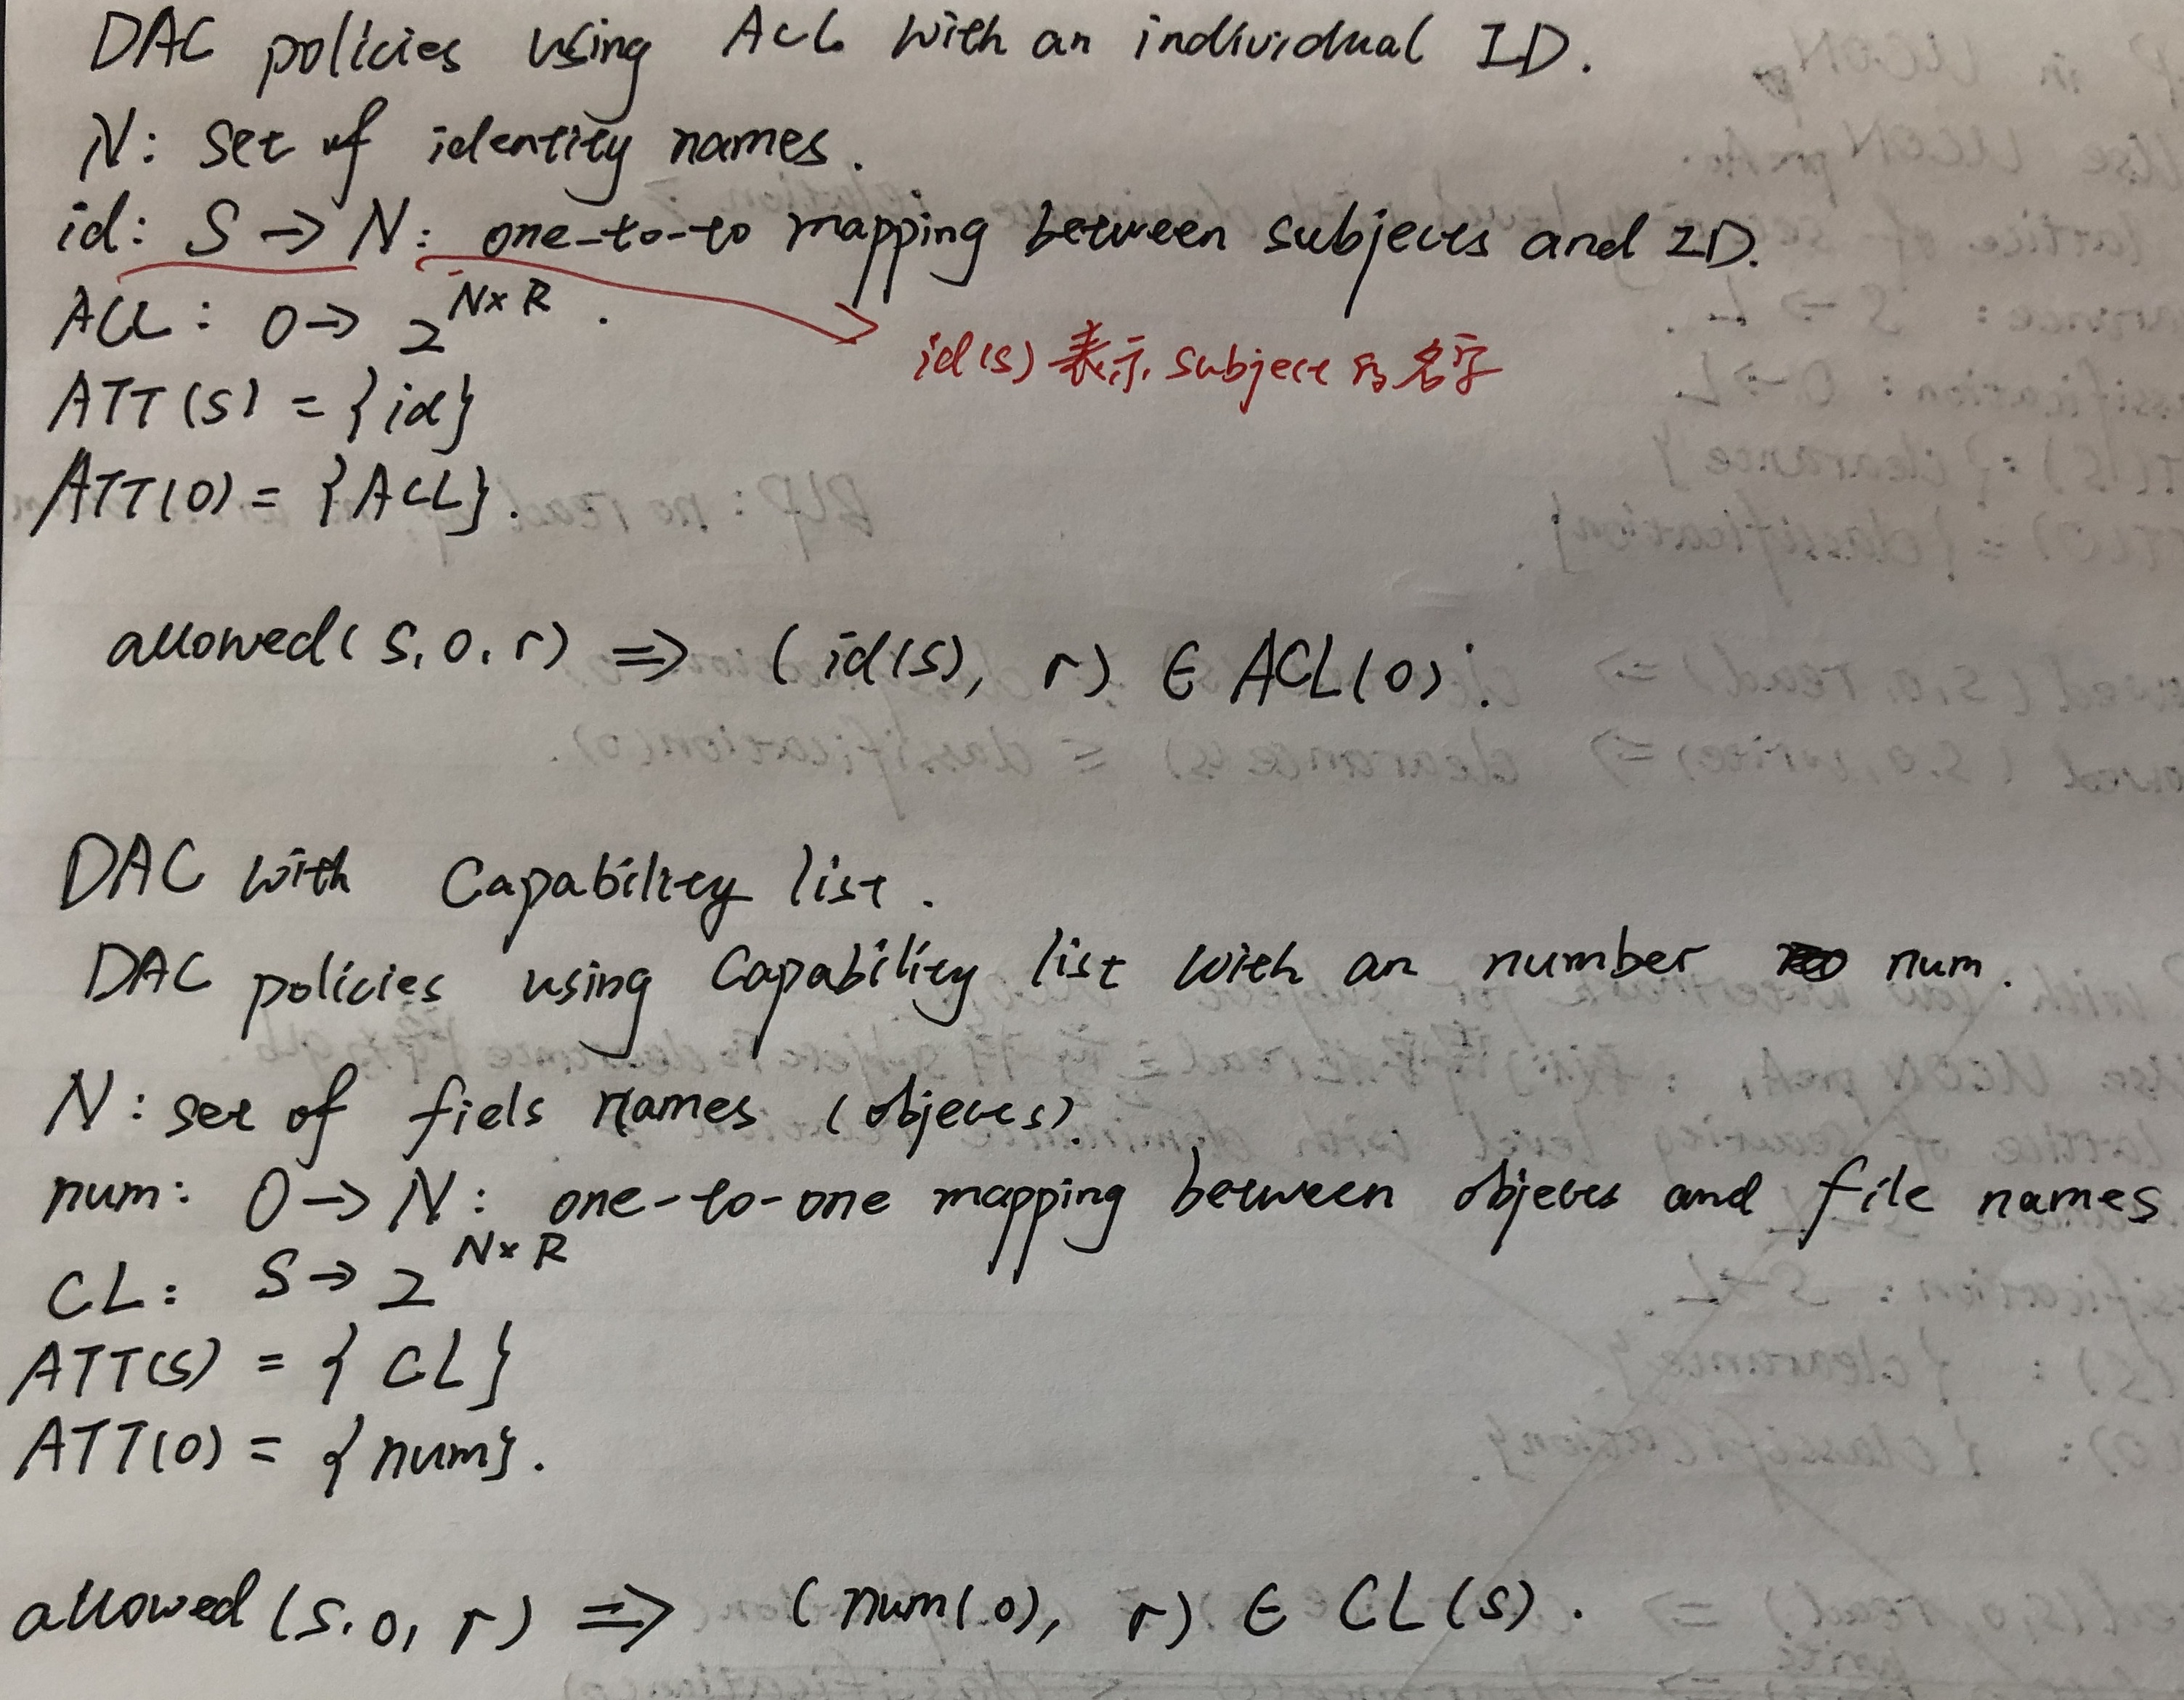 DAC policies using ACL with an individual ID.
N: set of identity names.
id: S → N: one-to-to mapping between subjects and ID.
ACL: O → 2^{N×R}.
id(s) 表示 subject 的 名字
ATT(S) = {id}
ATT(O) = {ACL}.
allowed(s, o, r) ⇒ (id(s), r) ∈ ACL(o).
DAC with Capability list.
DAC policies using Capability list with an number num.
N: set of fiels names (objects).
num: O → N: one-to-one mapping between objects and file names
CL: S → 2^{N×R}
ATT(S) = {CL}
ATT(O) = {num}.
allowed(s, o, r) ⇒ (num(o), r) ∈ CL(s).